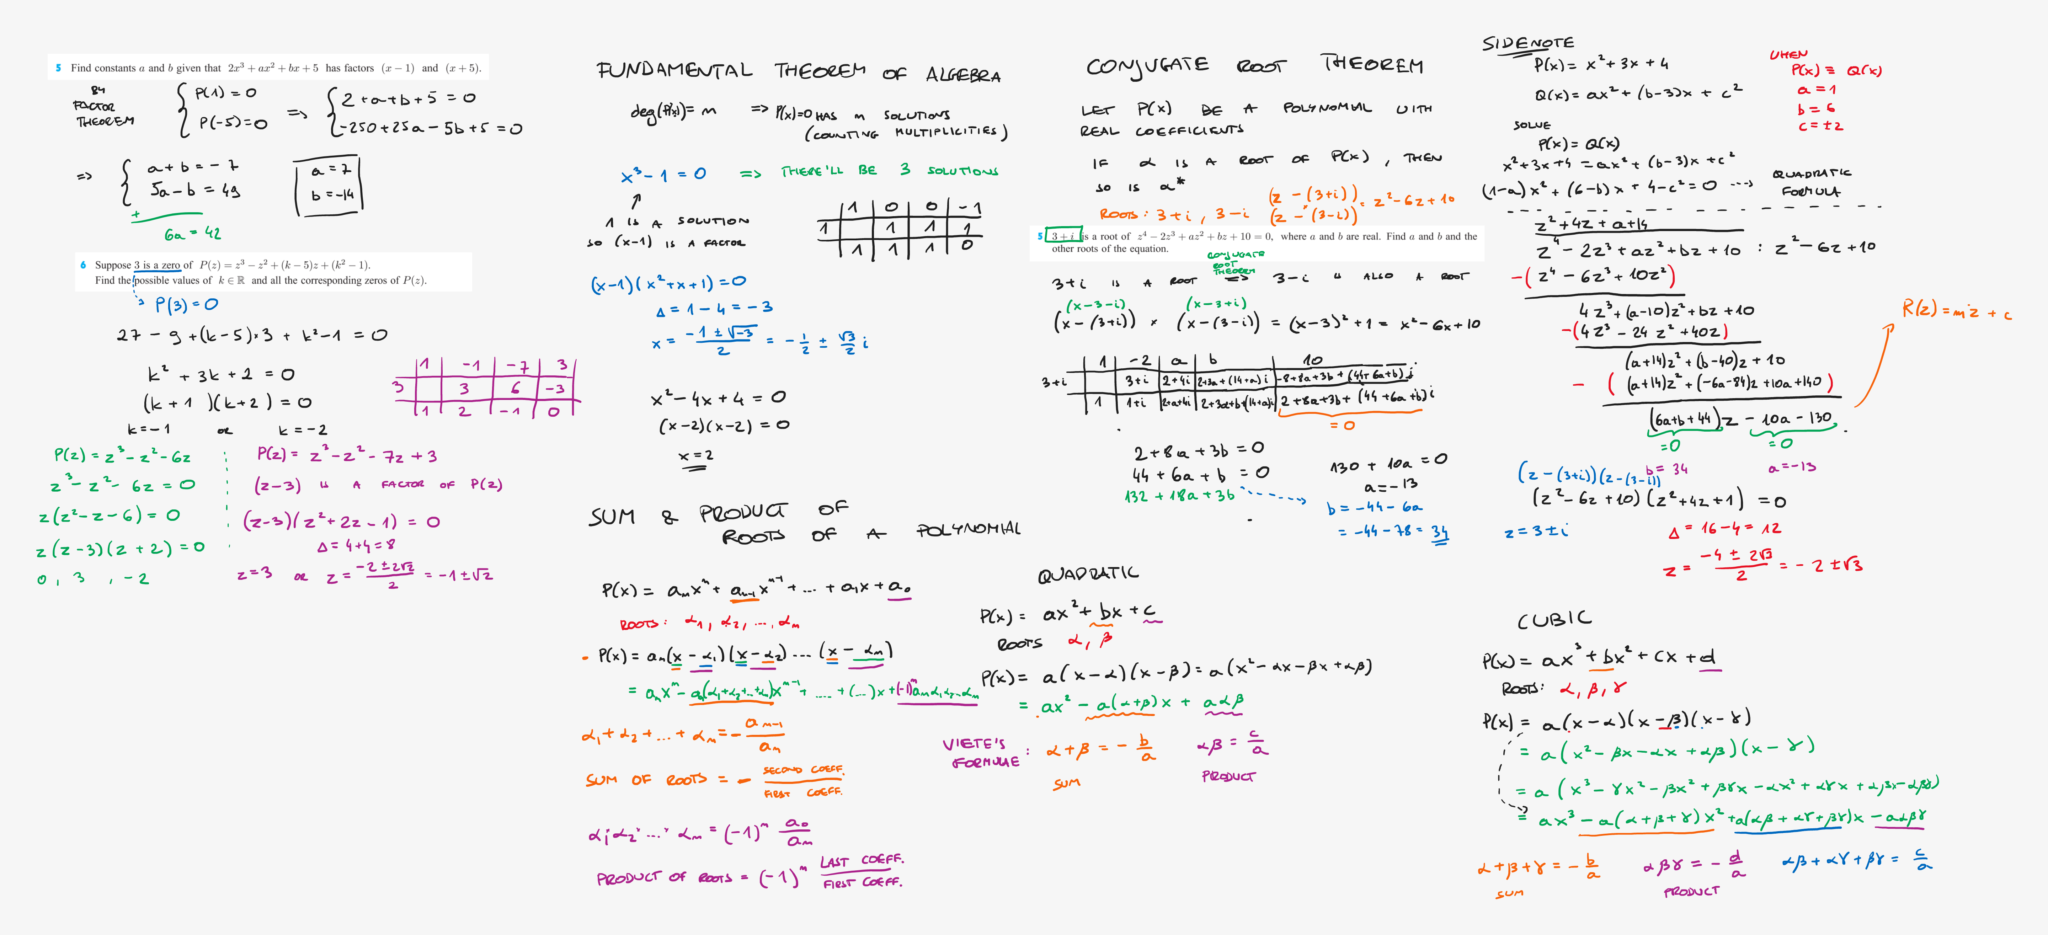 5 Find constants a and b given that 2x³ + ax² + bx + 5 has factors (x − 1) and (x + 5).
BY FACTOR THEOREM
{ P(1) = 0
P(-5) = 0
=> { 2 + a + b + 5 = 0
-250 + 25a - 5b + 5 = 0
=> { a + b = -7
5a - b = 49
+
6a = 42
a = 7
b = -14
6 Suppose 3 is a zero of P(z) = z³ − z² + (k − 5)z + (k² − 1).
Find the possible values of k ∈ ℝ and all the corresponding zeros of P(z).
P(3) = 0
27 - 9 + (k-5)·3 + k² - 1 = 0
k² + 3k + 2 = 0
(k + 1)(k + 2) = 0
k = -1 or k = -2
1 -1 -7 3
3 3 6 -3
1 2 -1 0
P(z) = z³ - z² - 6z
z³ - z² - 6z = 0
z(z² - z - 6) = 0
z(z-3)(z+2) = 0
0, 3, -2
P(z) = z³ - z² - 7z + 3
(z-3) IS A FACTOR OF P(z)
(z-3)(z² + 2z - 1) = 0
Δ = 4 + 4 = 8
z = 3 or z = (-2 ± 2√2)/2 = -1 ± √2
FUNDAMENTAL THEOREM OF ALGEBRA
deg(P(x)) = n => P(x) = 0 HAS n SOLUTIONS
(COUNTING MULTIPLICITIES)
x³ - 1 = 0 => THERE'LL BE 3 SOLUTIONS
↑
1 IS A SOLUTION
SO (x-1) IS A FACTOR
1 0 0 -1
1 1 1 1
1 1 1 0
(x-1)(x² + x + 1) = 0
Δ = 1 - 4 = -3
x = (-1 ± √-3)/2 = -1/2 ± √3/2 i
x² - 4x + 4 = 0
(x-2)(x-2) = 0
x = 2
SUM & PRODUCT OF
ROOTS OF A POLYNOMIAL
P(x) = aₙxⁿ + aₙ₋₁xⁿ⁻¹ + ... + a₁x + a₀
ROOTS: α₁, α₂, ..., αₙ
P(x) = aₙ(x - α₁)(x - α₂) ... (x - αₙ)
= aₙxⁿ - aₙ(α₁+α₂+...+αₙ)xⁿ⁻¹ + .... + (...)x + (-1)ⁿaₙα₁α₂...αₙ
α₁ + α₂ + ... + αₙ = - aₙ₋₁/aₙ
SUM OF ROOTS = - SECOND COEFF./FIRST COEFF.
α₁·α₂·...·αₙ = (-1)ⁿ a₀/aₙ
PRODUCT OF ROOTS = (-1)ⁿ LAST COEFF./FIRST COEFF.
CONJUGATE ROOT THEOREM
LET P(x) BE A POLYNOMIAL WITH
REAL COEFFICIENTS
IF α IS A ROOT OF P(x), THEN
SO IS α*
ROOTS: 3+i, 3-i (z - (3+i))(z - (3-i)) = z² - 6z + 10
5 3 + i is a root of z⁴ − 2z³ + az² + bz + 10 = 0, where a and b are real. Find a and b and the
other roots of the equation.
CONJUGATE ROOT THEOREM
3+i IS A ROOT => 3-i IS ALSO A ROOT
(x-3-i) (x-3+i)
(x-(3+i)) × (x-(3-i)) = (x-3)² + 1 = x² - 6x + 10
1 -2 a b 10
3+i 3+i 2+4i 2+3a+(14+a)i -8+8a+3b+(44+6a+b)i
1 1+i 2+a+4i 2+3a+b+(14+a)i 2+8a+3b+(44+6a+b)i
= 0
2 + 8a + 3b = 0
44 + 6a + b = 0
132 + 18a + 3b
130 + 10a = 0
a = -13
b = -44 - 6a
= -44 - 78 = 34
QUADRATIC
P(x) = ax² + bx + c
ROOTS α, β
P(x) = a(x-α)(x-β) = a(x² - αx - βx + αβ)
= ax² - a(α+β)x + aαβ
VIETE'S FORMULAE: α+β = - b/a αβ = c/a
SUM PRODUCT
SIDENOTE
P(x) = x² + 3x + 4
Q(x) = ax² + (b-3)x + c²
WHEN
P(x) ≡ Q(x)
a = 1
b = 6
c = ±2
SOLVE
P(x) = Q(x)
x² + 3x + 4 = ax² + (b-3)x + c²
(1-a)x² + (6-b)x + 4 - c² = 0 ---> QUADRATIC FORMULA
z² + 4z + a+14
z⁴ - 2z³ + az² + bz + 10 : z² - 6z + 10
-(z⁴ - 6z³ + 10z²)
4z³ + (a-10)z² + bz + 10
-(4z³ - 24z² + 40z)
(a+14)z² + (b-40)z + 10
-((a+14)z² + (-6a-84)z + 10a + 140)
(6a+b+44)z - 10a - 130
= 0 = 0
b = 34 a = -13
R(z) = mz + c
(z-(3+i))(z-(3-i))
(z² - 6z + 10)(z² + 4z + 1) = 0
z = 3 ± i
Δ = 16 - 4 = 12
z = (-4 ± 2√3)/2 = -2 ± √3
CUBIC
P(x) = ax³ + bx² + cx + d
ROOTS: α, β, γ
P(x) = a(x-α)(x-β)(x-γ)
= a(x² - βx - αx + αβ)(x-γ)
= a(x³ - γx² - βx² + βγx - αx² + αγx + αβx - αβγ)
= ax³ - a(α+β+γ)x² + a(αβ+αγ+βγ)x - aαβγ
α+β+γ = - b/a αβγ = - d/a αβ + αγ + βγ = c/a
SUM PRODUCT